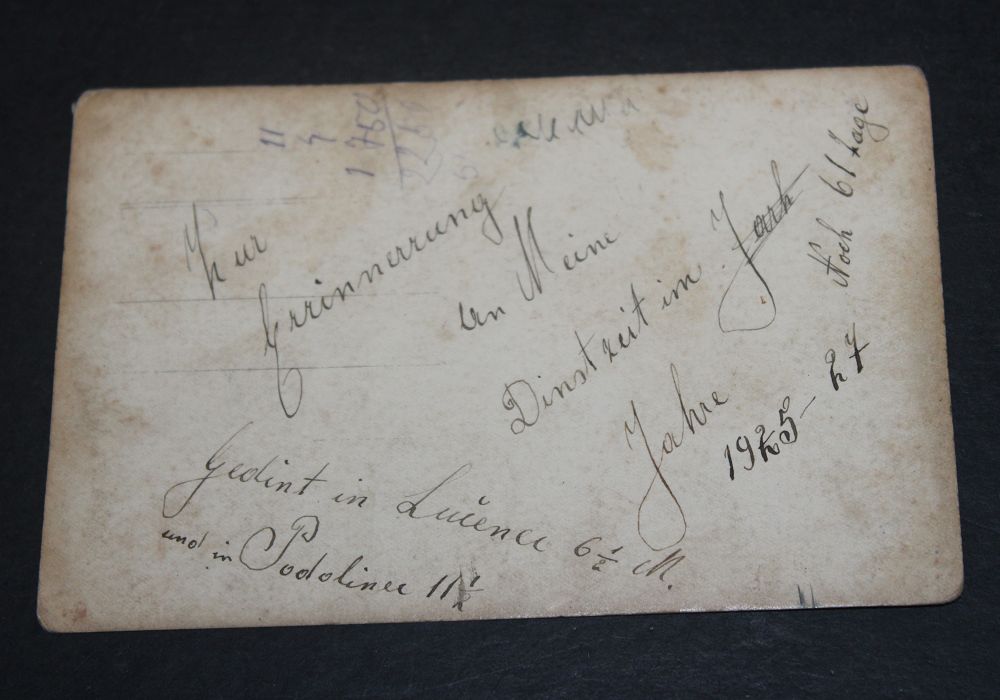 Zur
Errinnerrung
an Meine
Dinstzeit im Jarh
Jahre
1925-27
Noch 61 tage
Gedint in Lučenec 6 1/2 M.
und in Podolinec 11 1/2
11